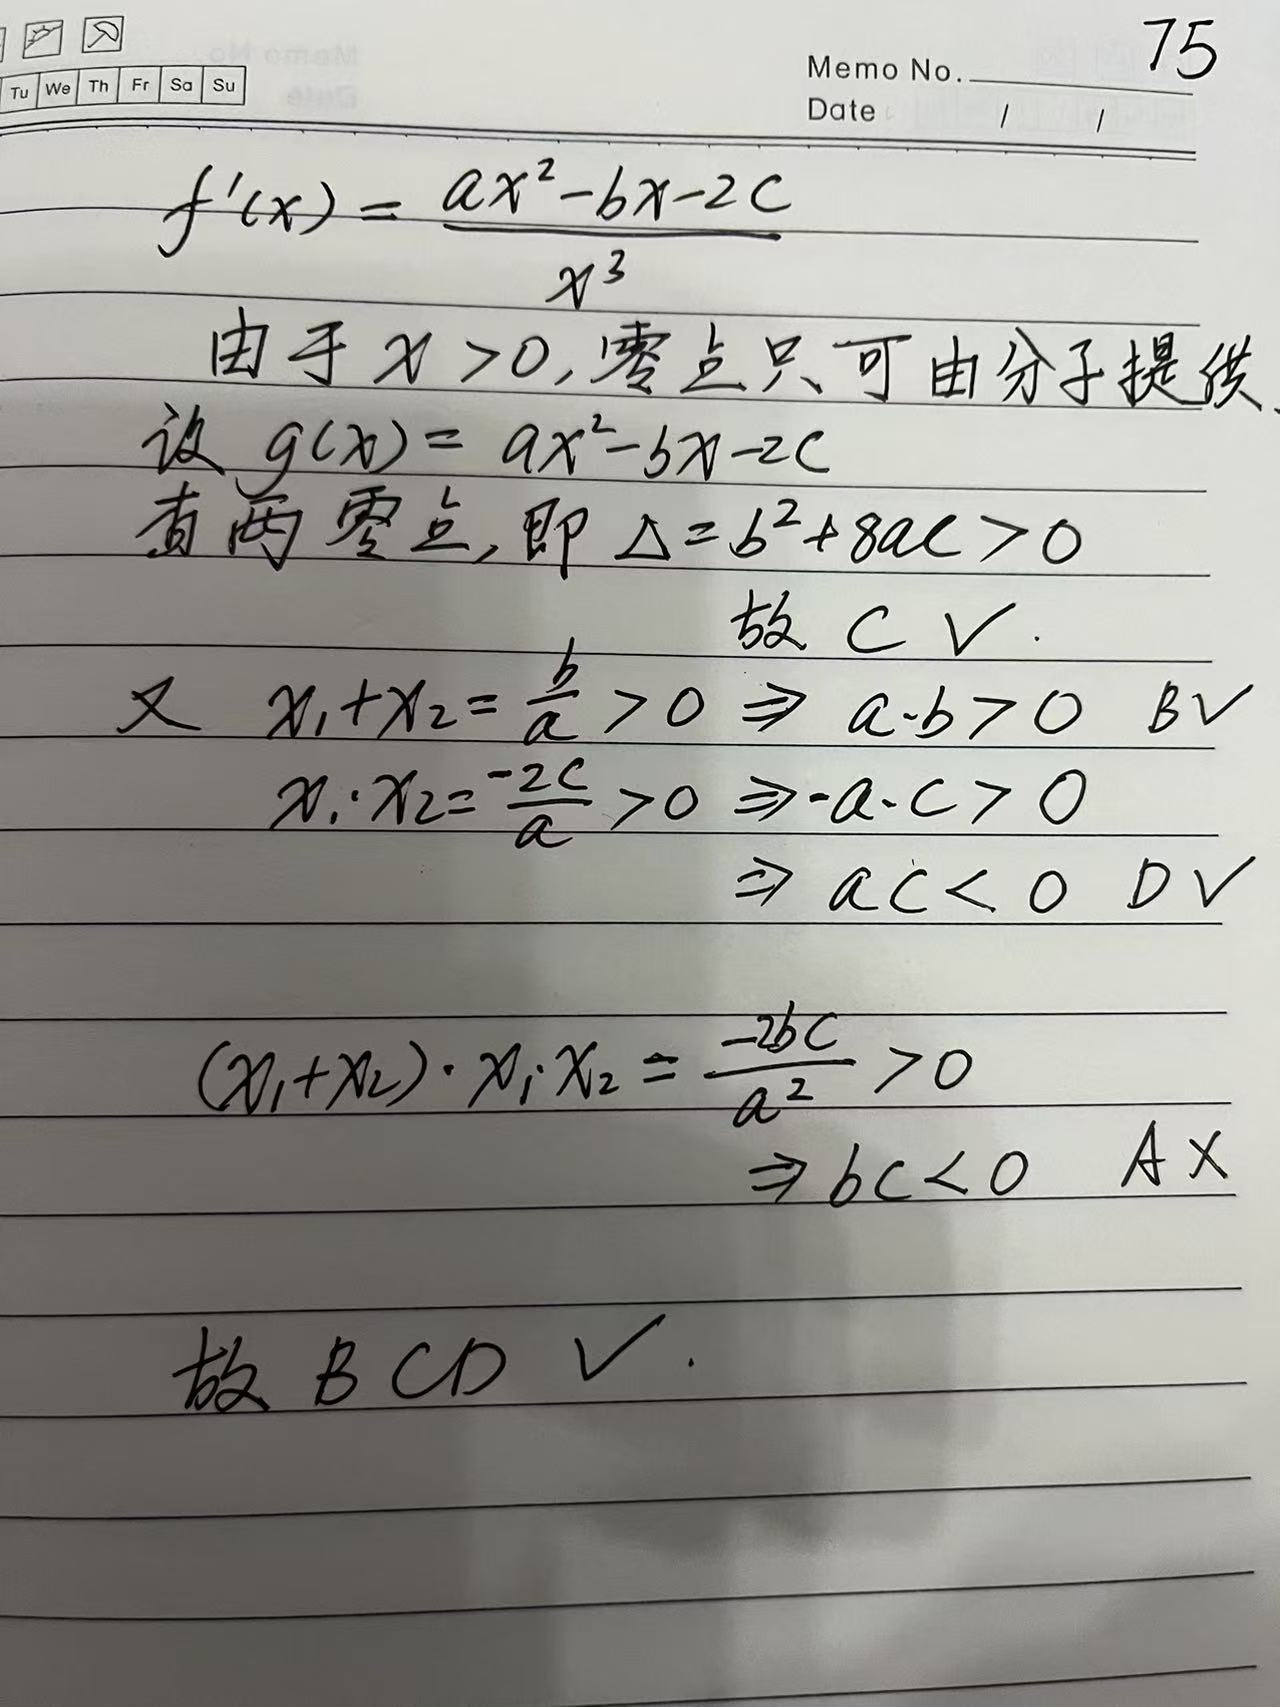 75
Memo No.
Tu We Th Fr Sa Su
Date / /
f'(x) = \frac{ax²-bx-2c}{x³}
由于 x>0, 零点只可由分子提供.
设 g(x) = ax²-bx-2c
有两零点, 即 Δ=b²+8ac>0
故 C √.
又 x₁+x₂ = \frac{b}{a} >0 ⇒ a·b>0 B√
x₁·x₂ = \frac{-2c}{a} >0 ⇒ -a·c>0
⇒ ac<0 D√
(x₁+x₂)·x₁·x₂ = \frac{-2bc}{a²} >0
⇒ bc<0 A×
故 BCD √.